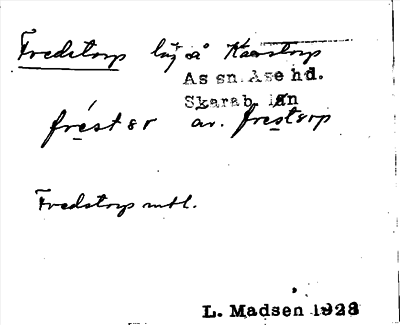 Fredstorp låg å Kaerstorp
As sn. Åse hd.
Skarab. län
frestər av. frestərp
Fredstorp mtl.
L. Madsen 1928